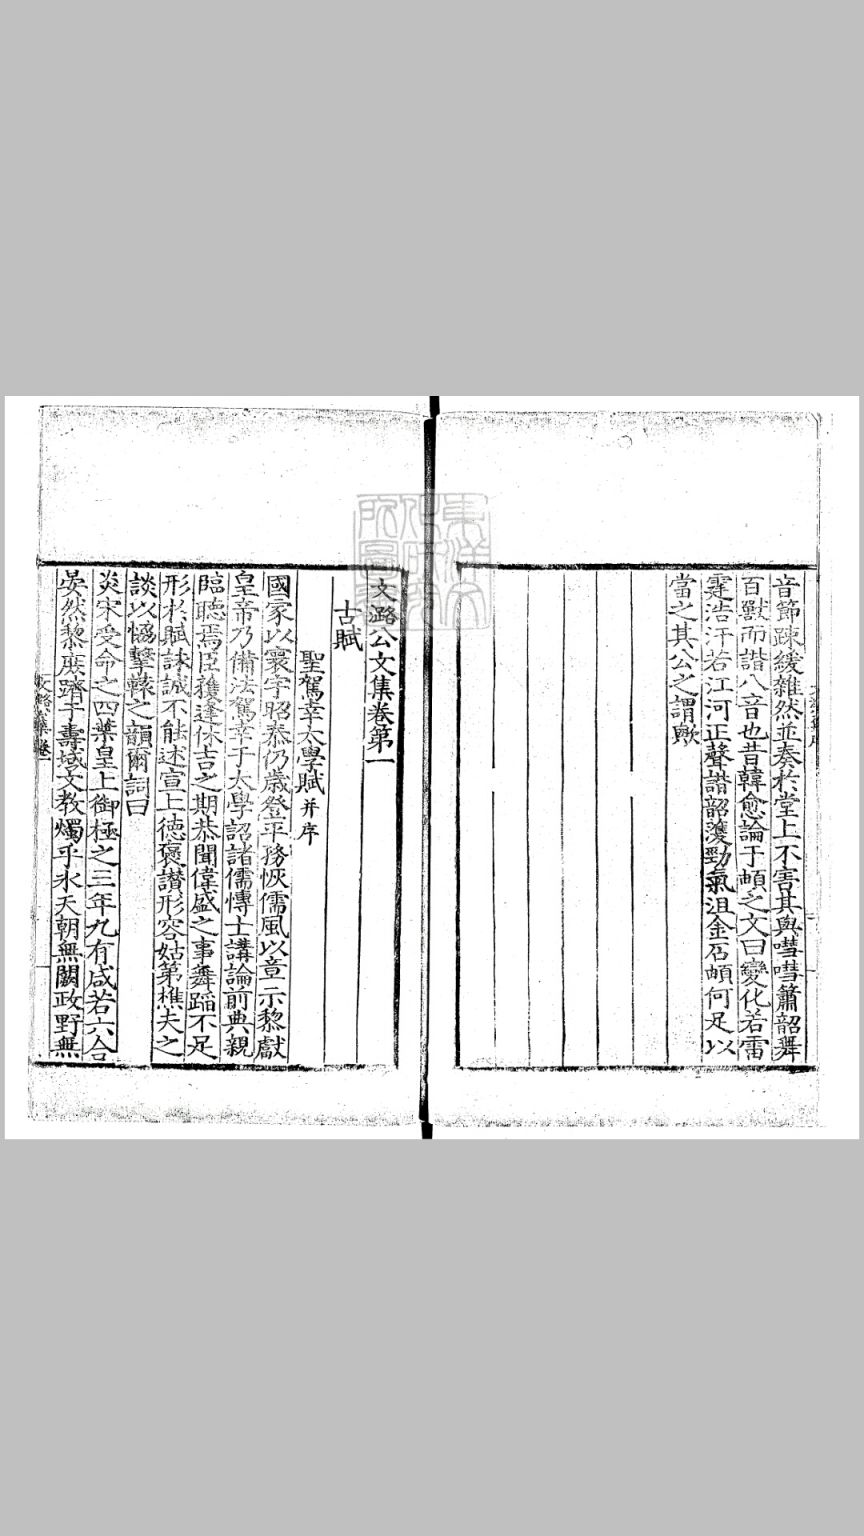 音節踈緩雜然並奏於堂上不害其與嘒嘒簫韶舞
百獸而諧八音也昔韓愈論于頔之文曰變化若雷
霆浩汗若江河正聲諧韶濩勁氣沮金石頔何足以
當之其公之謂歟
文潞公文集卷第一
古賦
聖駕幸太學賦并序
國家以寰宇昭泰仍歲登平務恢儒風以章示黎獻
皇帝乃備法駕幸于太學詔諸儒博士講論前典親
臨聽焉臣獲逢休吉之期恭聞偉盛之事舞蹈不足
形於賦詠誠不能述宣上德褒讃形容姑第樵夫之
談以恊擊轅之韻爾詞曰
炎宋受命之四葉皇上御極之三年九有咸若六合
晏然黎庶躋于壽域文教燭乎氷天朝無闕政野無